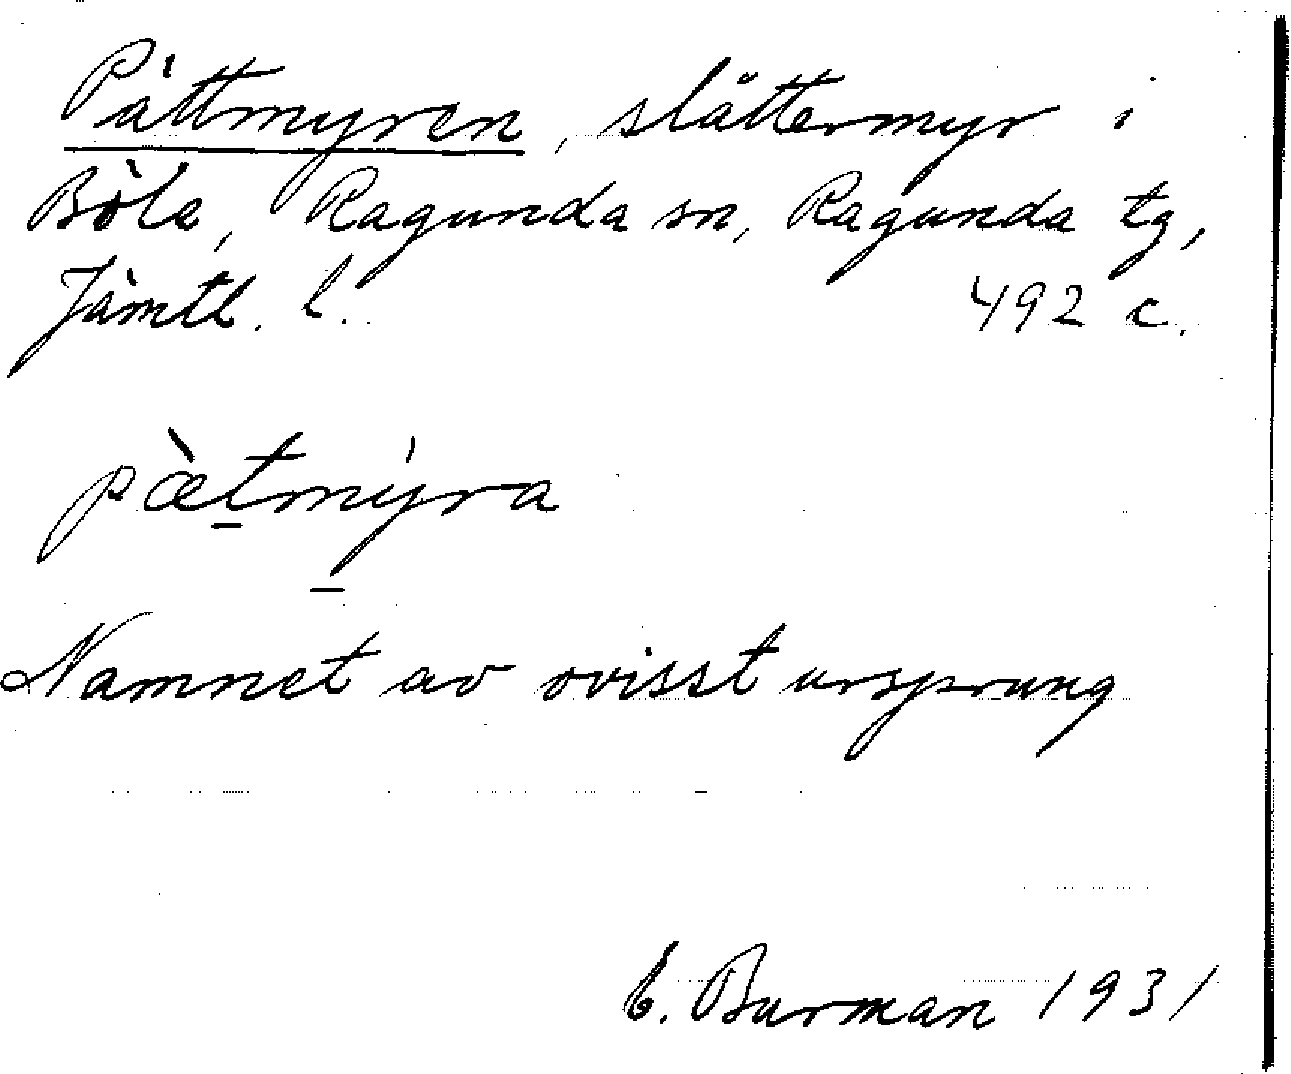 Pättmyren, slåttermyr i
Böle, Ragunda sn, Ragunda tg,
Jämtl. l. 492 c.
pæ̀tmýra
Namnet av ovisst ursprung
E. Burman 1931